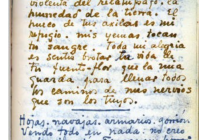 violeta del relámpago. la
humedad de la tierra. el
hueco de tus axilas es mi
refugio. mis yemas tocan
tu sangre. Toda mi alegría
es sentir brotar la vida de
tu fuente-flor que la mía
guarda para llenar todos
los caminos de mis nervios
que son los tuyos.
Hojas. navajas. armario. gorrión
Vendo todo en nada. no creo